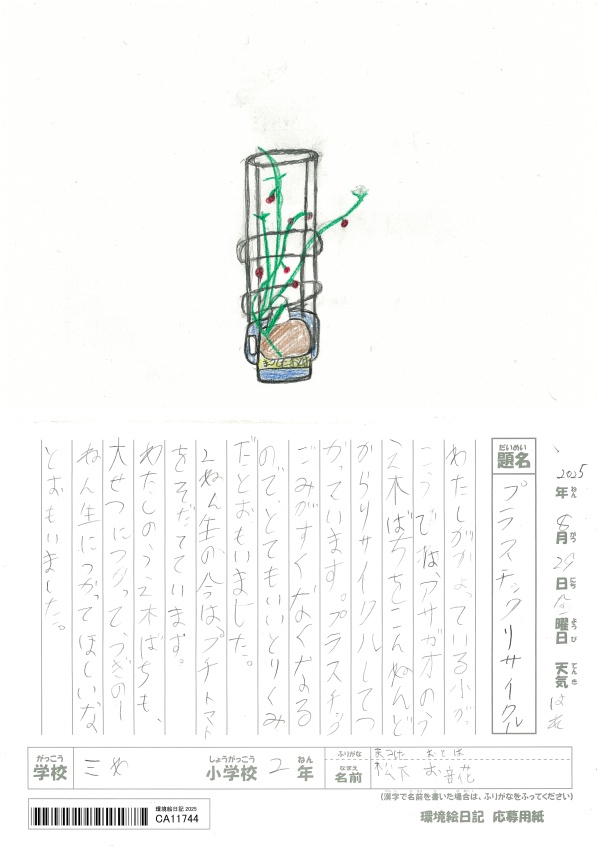 2025年 8月 29日 金曜日 天気 はれ
ねん がつ にち ようび てんき
だいめい
題名 プラスチックリサイクル
わたしがかよっている小がっ
こうでは、アサガオのう
え木ばちをこんねんど
からリサイクルしてつ
かっています。プラスチック
ごみがすくなくなる
ので、とてもいいとりくみ
だとおもいました。
2ねん生の今は、プチトマト
をそだてています。
わたしのうえ木ばちも、
大せつにつかって、つぎの一
ねん生につかってほしいな
とおもいました。
がっこう しょうがっこう ねん
学校 三わ 小学校 2年
ふりがな まつした おとは
なまえ
名前 松下 音花
(漢字で名前を書いた場合は、ふりがなをふってください)
環境絵日記 2025
CA11744
環境絵日記 応募用紙